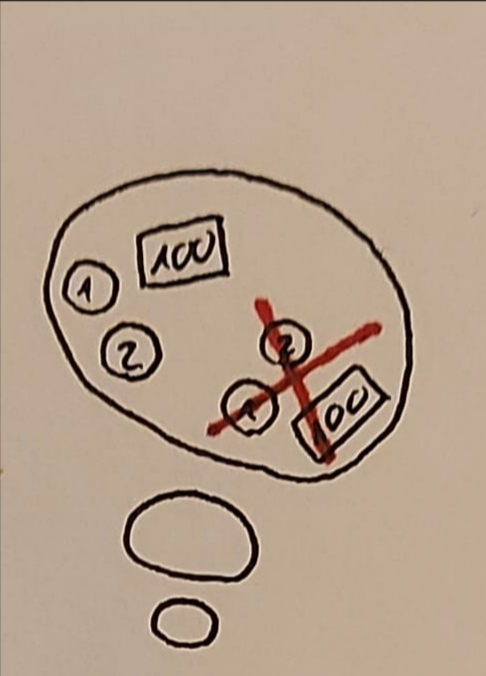 100
1
2
2
1
100